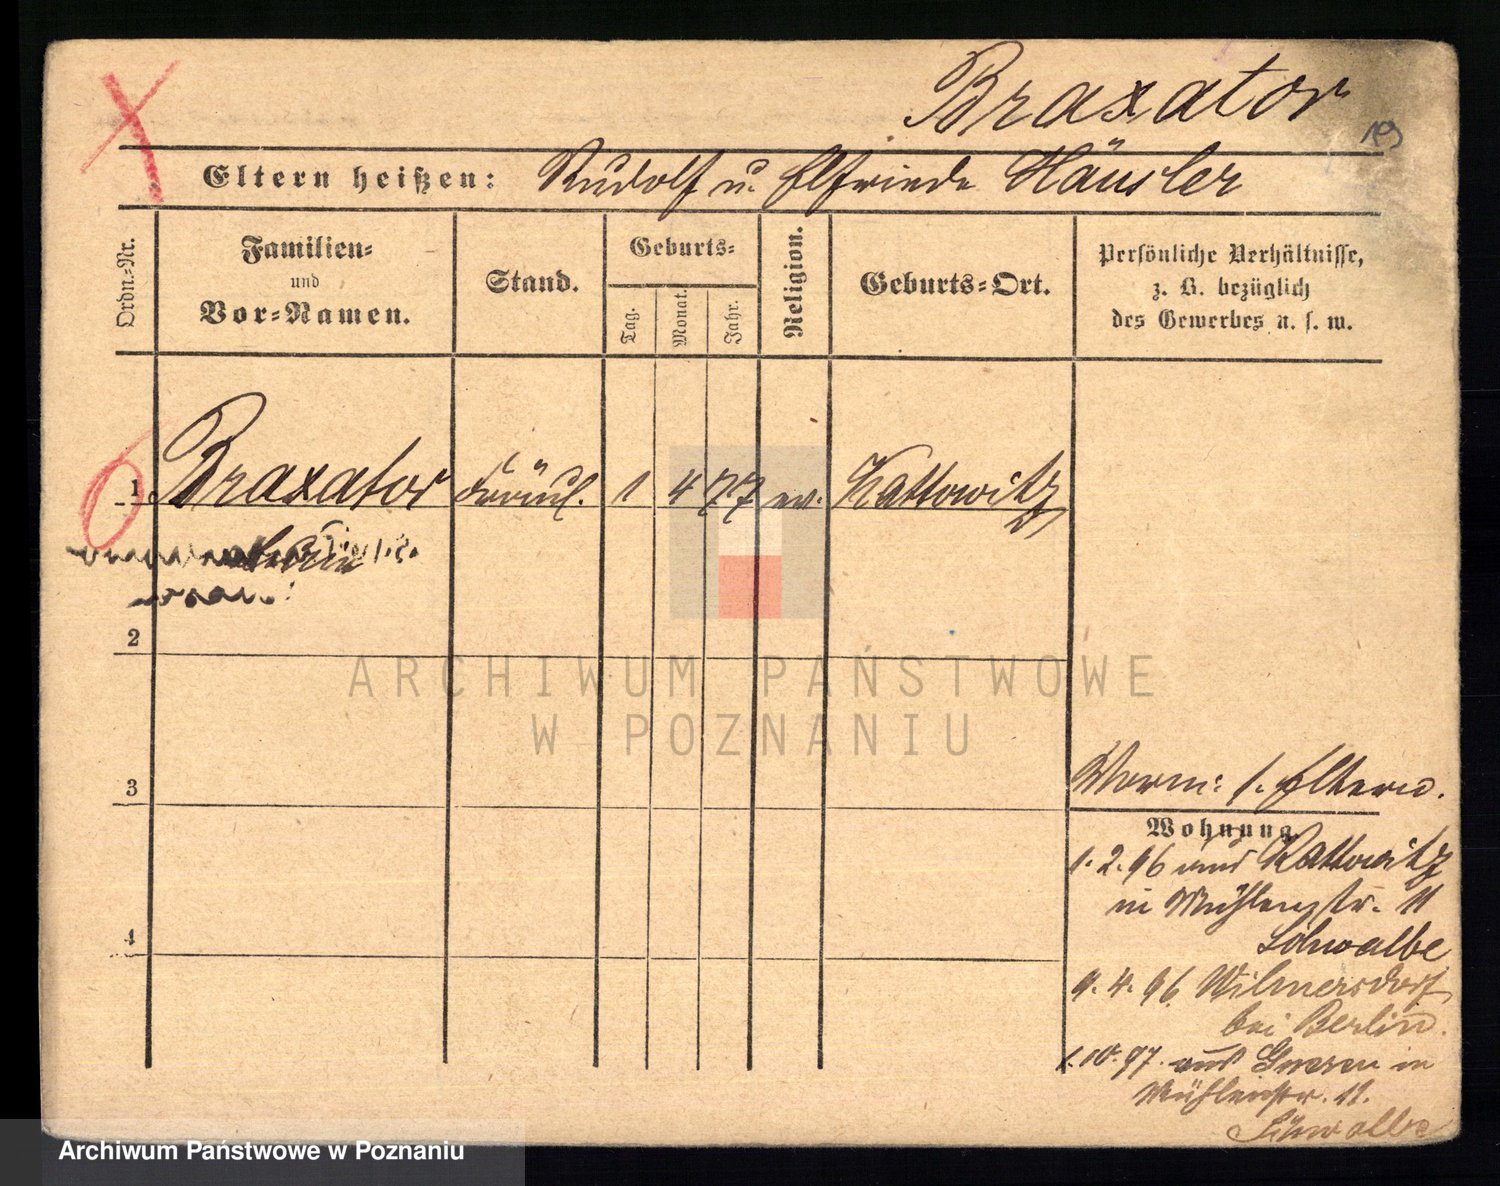 Braxator
Eltern heißen: Rudolf u. Elfriede Häusler
Ordn.-Nr.
Familien-
und
Vor-Namen.
Stand.
Geburts-
Tag.
Monat.
Jahr.
Religion.
Geburts-Ort.
Persönliche Verhältnisse,
z. B. bezüglich
des Gewerbes u. s. w.
1 Braxator Fräul. 1 4 77 ev. Kattowitz
2
3
4
Vorm: s. Eltern.
Wohnung.
1.2.96 aus Kattowitz
in Mühlenstr. 11
Schwalbe
9.4.96 Wilmersdorf
bei Berlin.
1.10.97 aus Gnesen in
Mühlenstr. 11.
Schwalbe
ARCHIWUM PAŃSTWOWE
W POZNANIU
Archiwum Państwowe w Poznaniu